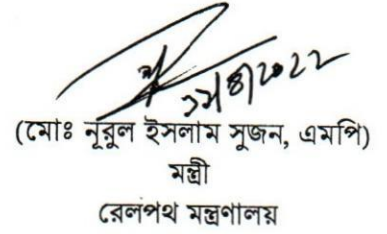 (মোঃ নূরুল ইসলাম সুজন, এমপি)
মন্ত্রী
রেলপথ মন্ত্রণালয়